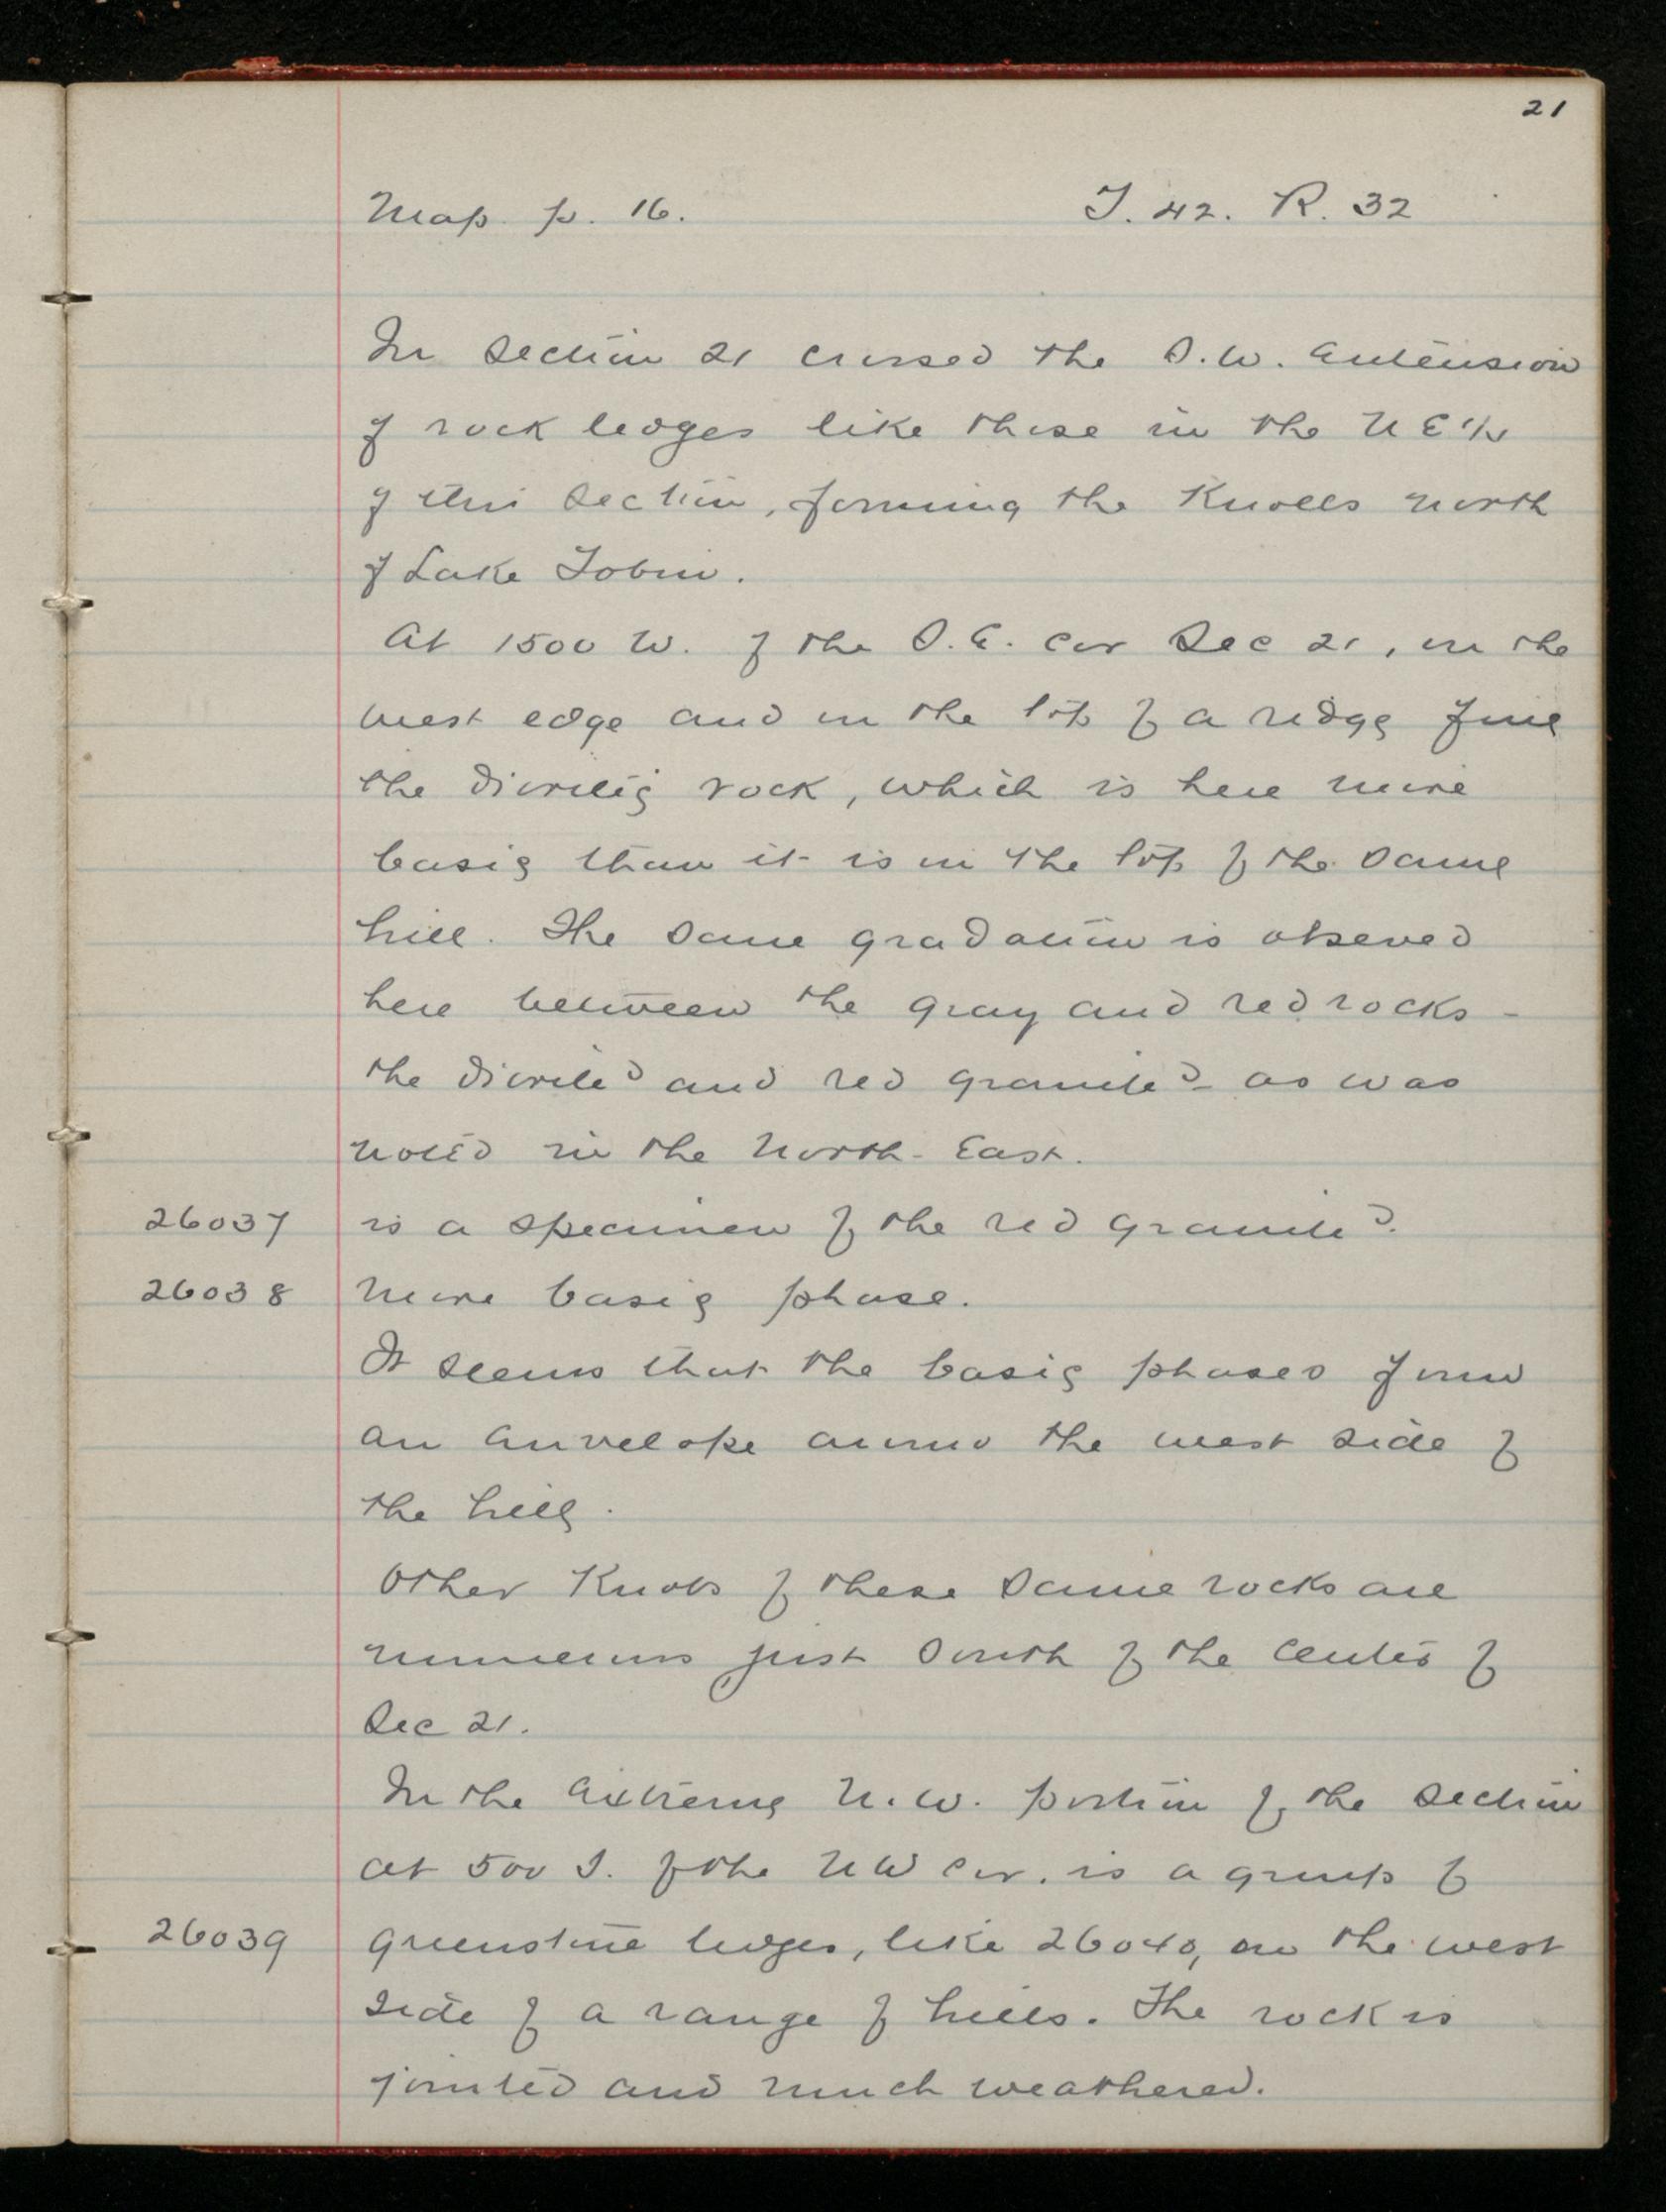 21
Map p. 16. T. 42. R. 32
In Section 21 crossed the S.W. Extension
of rock ledges like those in the N E 1/4
of this Section, forming the Knolls north
of Lake Tobin.
At 1500 W. of the S.E. cor Sec 21, on the
west edge and in the top of a ridge find
the dioritic rock, which is here more
basic than it is in the top of the same
hill. The same gradation is observed
here between the gray and red rocks -
the diorite? and red granite? - as was
noted in the North-East.
26037 is a specimen of the red granite?.
26038 More basic phase.
It seems that the basic phases form
an envelope around the west side of
the hill.
Other Knobs of these same rocks are
numerous just South of the center of
Sec 21.
In the extreme N.W. portion of the Section
at 500 S. of the NW cor. is a group of
26039 greenstone ledges, like 26040, on the west
side of a range of hills. The rock is
jointed and much weathered.